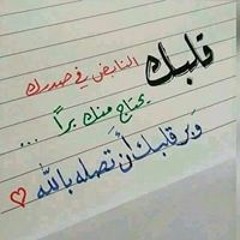 قلبك النابض في صدرك
يحتاج منك براً ...
وَبر قلبك أن تصله بالله